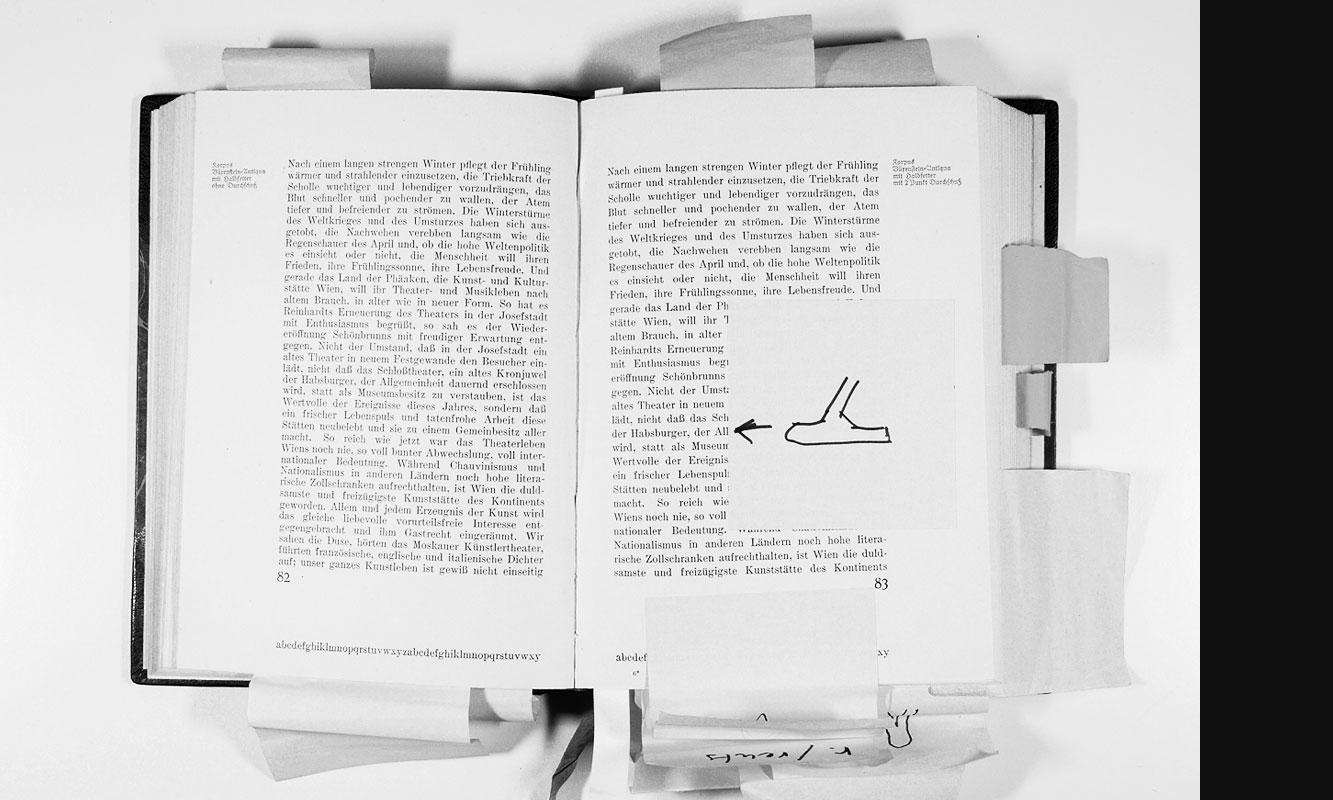 Korpus
Bärenstein-Antiqua
mit Halbfetter
ohne Durchschuß
Nach einem langen strengen Winter pflegt der Frühling
wärmer und strahlender einzusetzen, die Triebkraft der
Scholle wuchtiger und lebendiger vorzudrängen, das
Blut schneller und pochender zu wallen, der Atem
tiefer und befreiender zu strömen. Die Winterstürme
des Weltkrieges und des Umsturzes haben sich aus-
getobt, die Nachwehen verebben langsam wie die
Regenschauer des April und, ob die hohe Weltenpolitik
es einsieht oder nicht, die Menschheit will ihren
Frieden, ihre Frühlingssonne, ihre Lebensfreude. Und
gerade das Land der Phäaken, die Kunst- und Kultur-
stätte Wien, will ihr Theater- und Musikleben nach
altem Brauch, in alter wie in neuer Form. So hat es
Reinhardts Erneuerung des Theaters in der Josefstadt
mit Enthusiasmus begrüßt, so sah es der Wieder-
eröffnung Schönbrunns mit freudiger Erwartung ent-
gegen. Nicht der Umstand, daß in der Josefstadt ein
altes Theater in neuem Festgewande den Besucher ein-
lädt, nicht daß das Schloßtheater, ein altes Kronjuwel
der Habsburger, der Allgemeinheit dauernd erschlossen
wird, statt als Museumsbesitz zu verstauben, ist das
Wertvolle der Ereignisse dieses Jahres, sondern daß
ein frischer Lebenspuls und tatenfrohe Arbeit diese
Stätten neubelebt und sie zu einem Gemeinbesitz aller
macht. So reich wie jetzt war das Theaterleben
Wiens noch nie, so voll bunter Abwechslung, voll inter-
nationaler Bedeutung. Während Chauvinismus und
Nationalismus in anderen Ländern noch hohe litera-
rische Zollschranken aufrechthalten, ist Wien die duld-
samste und freizügigste Kunststätte des Kontinents
geworden. Allem und jedem Erzeugnis der Kunst wird
das gleiche liebevolle vorurteilsfreie Interesse ent-
gegengebracht und ihm Gastrecht eingeräumt. Wir
sahen die Duse, hörten das Moskauer Künstlertheater,
führten französische, englische und italienische Dichter
auf; unser ganzes Kunstleben ist gewiß nicht einseitig
82
abcdefghiklmnopqrstuvwxyzabcdefghiklmnopqrstuvwxy
Korpus
Bärenstein-Antiqua
mit Halbfetter
mit 2 Punkt Durchschuß
Nach einem langen strengen Winter pflegt der Frühling
wärmer und strahlender einzusetzen, die Triebkraft der
Scholle wuchtiger und lebendiger vorzudrängen, das
Blut schneller und pochender zu wallen, der Atem
tiefer und befreiender zu strömen. Die Winterstürme
des Weltkrieges und des Umsturzes haben sich aus-
getobt, die Nachwehen verebben langsam wie die
Regenschauer des April und, ob die hohe Weltenpolitik
es einsieht oder nicht, die Menschheit will ihren
Frieden, ihre Frühlingssonne, ihre Lebensfreude. Und
gerade das Land der Ph
stätte Wien, will ihr
altem Brauch, in alter
Reinhardts Erneuerung
mit Enthusiasmus beg
eröffnung Schönbrunns
gegen. Nicht der Umst
altes Theater in neuem
lädt, nicht daß das Sch
der Habsburger, der All
wird, statt als Museum
Wertvolle der Ereignis
ein frischer Lebenspul
Stätten neubelebt und
macht. So reich wie
Wiens noch nie, so voll
nationaler Bedeutung. Während Chauvinismus und
Nationalismus in anderen Ländern noch hohe litera-
rische Zollschranken aufrechthalten, ist Wien die duld-
samste und freizügigste Kunststätte des Kontinents
83
abcdef xy
6*
r. / rechts